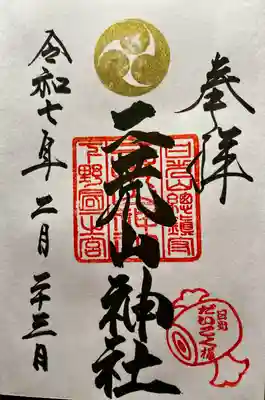 奉拝
二荒山神社
日光山總鎮守
下野國一之宮
日光
だいこく様
令和七年二月二十三日